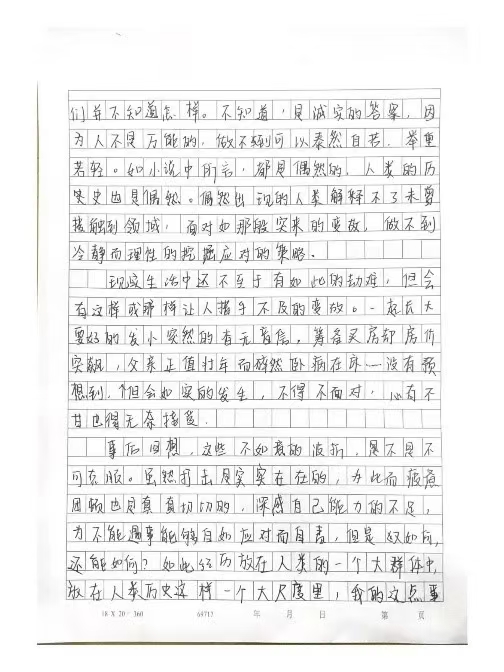 们并不知道怎样。不知道，是诚实的答案，因
为人不是万能的，做不到可以泰然自若，举重
若轻。如小说中所言，都是偶然的，人类的历
史也是偶然。偶然出现的人类解释不了未曾
接触到领域，面对如那般突来的变故，做不到
冷静而理性的挖掘应对的策略。
现实生活中还不至于有如此的劫难，但会
有这样或那样让人措手不及的变故。一起长大
要好的发小突然的杳无音信，筹备买房却房价
突飙，父亲正值壮年而猝然卧病在床……没有预
想到，但会如实的发生，不得不面对，心有不
甘也得无奈接受。
事后回想，这些不如意的波折，是不是不
可克服。虽然打击是实实在在的，为此而疲惫
困顿也是真真切切的，深感自己能力的不足，
为不能遇事能够自如应对而自责，但是又如何，
还能如何？如此经历放在人类的一个大群体中，
放在人类历史这样一个大尺度里，我的这点事
18×20=360 69717 年 月 日 第 页